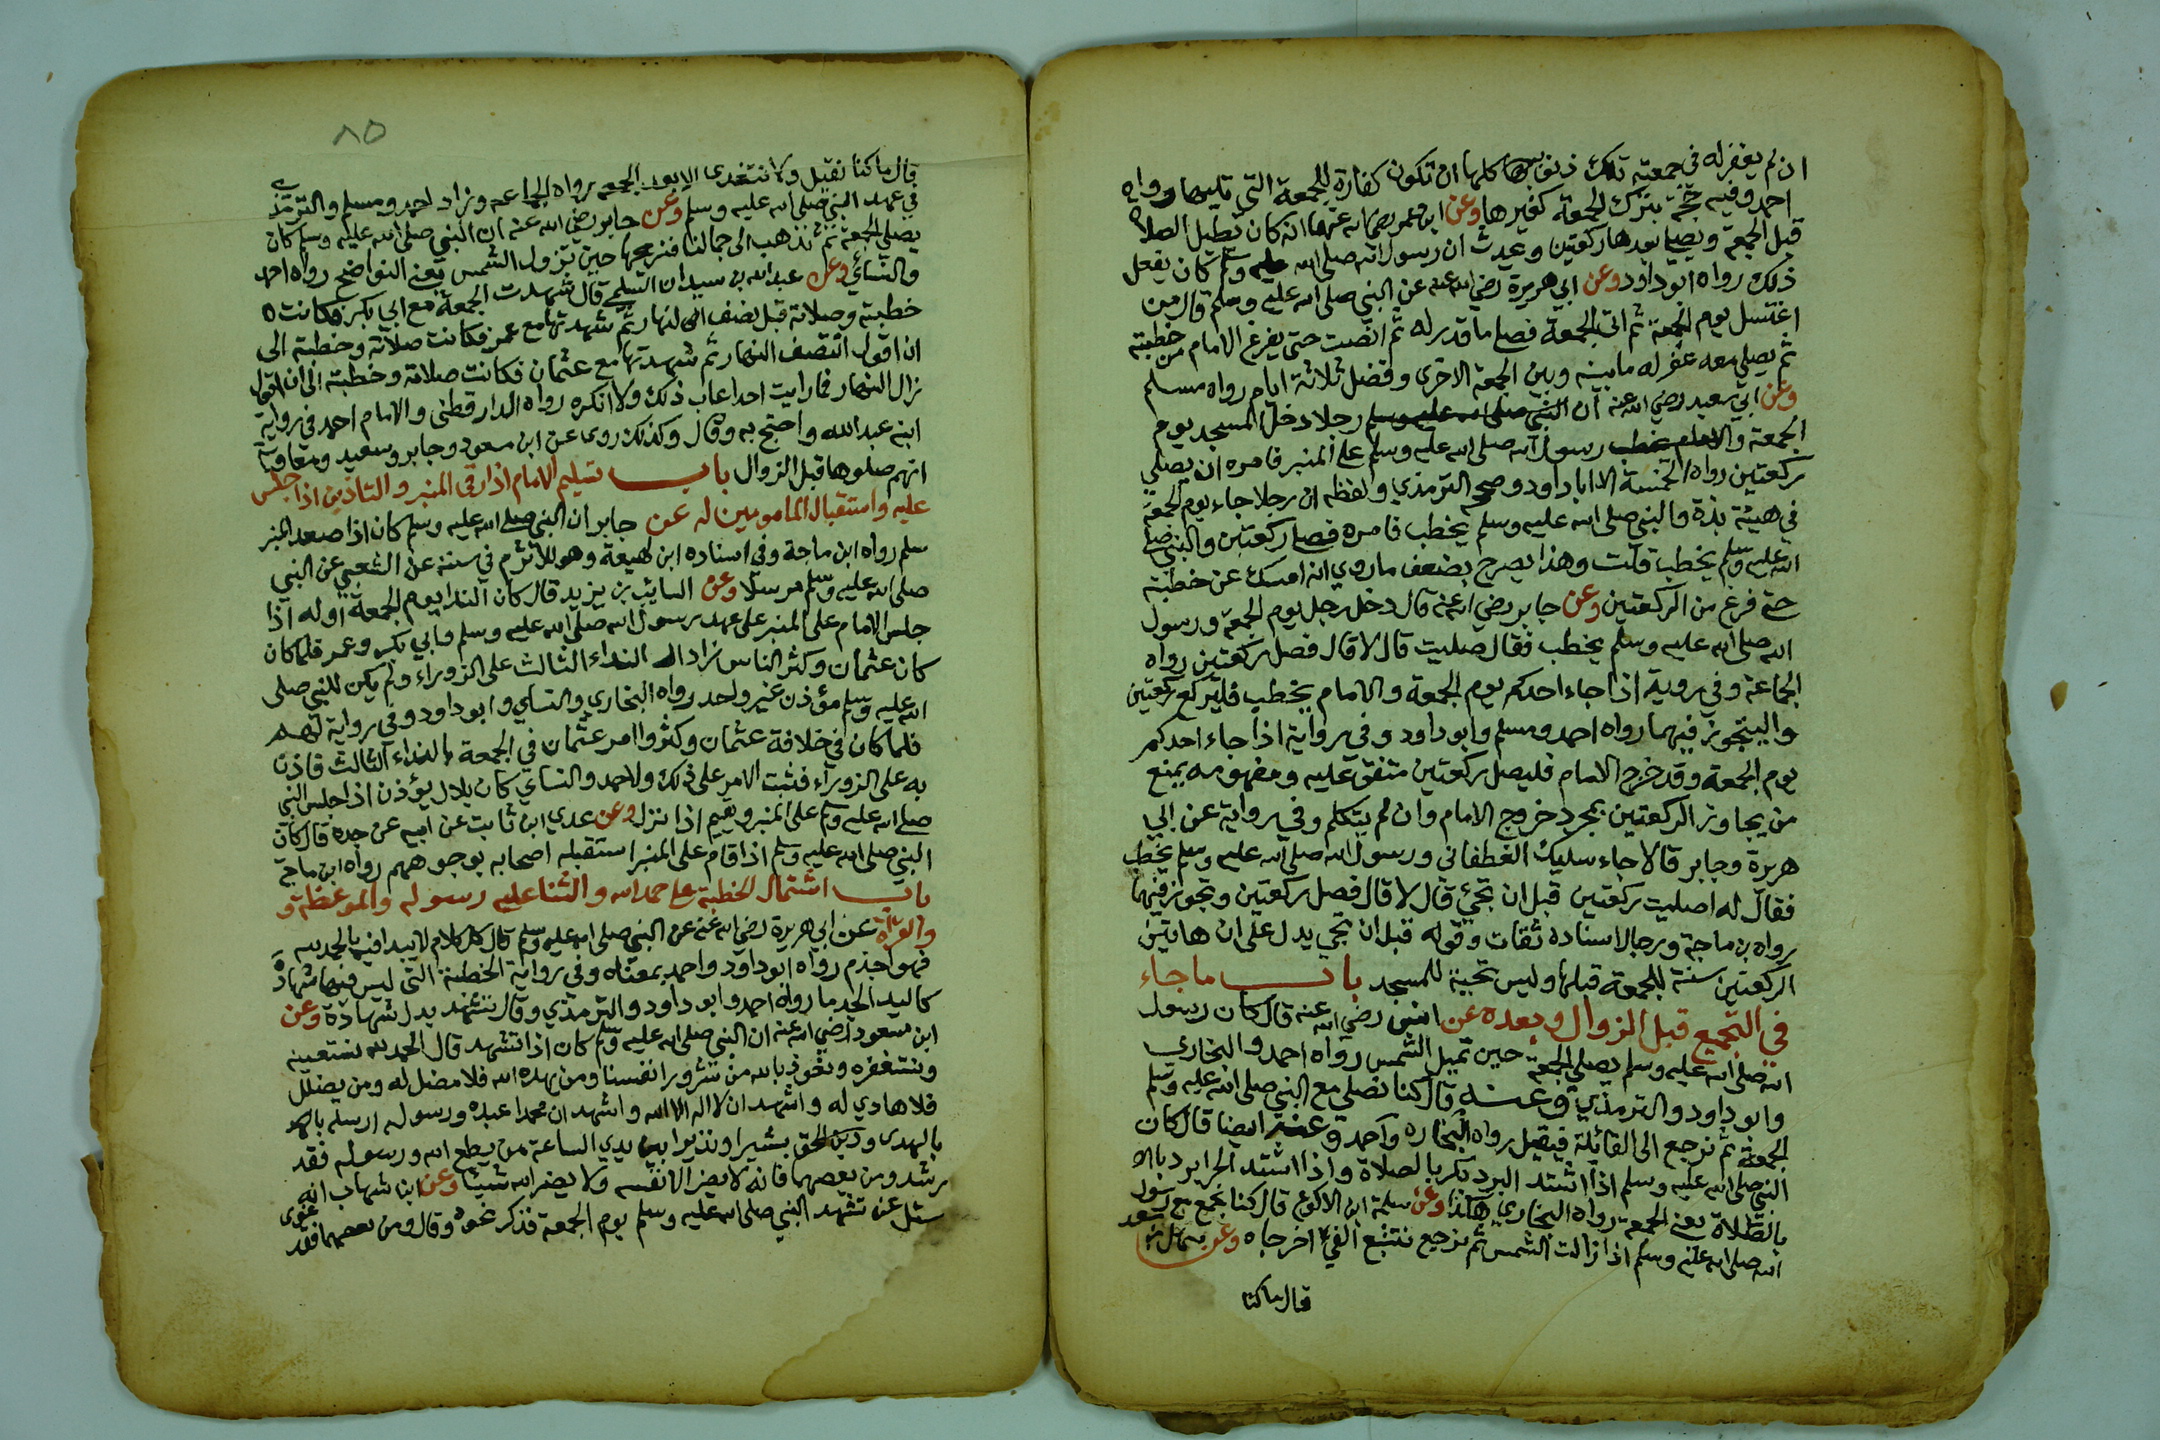 ان لم يغفر له في جمعته تلك ذنوبه كلها ان تكون كفارة للجمعة التي تليها رواه
احمد وفيه حجة بترك الجمعة كغيرها وعن ابن عمر رضي الله عنهما انه كان يطيل الصلاة
قبل الجمعة ويصلي بعدها ركعتين ويحدث ان رسول الله صلى الله عليه وسلم كان يفعل
ذلك رواه ابو داود وعن ابي هريرة رضي الله عنه عن النبي صلى الله عليه وسلم قال من
اغتسل يوم الجمعة ثم اتى الجمعة فصلى ما قدر له ثم انصت حتى يفرغ الامام من خطبته
ثم يصلي معه غفر له ما بينه وبين الجمعة الاخرى وفضل ثلاثة ايام رواه مسلم
وعن ابي سعيد رضي الله عنه ان النبي صلى الله عليه وسلم رجلا دخل المسجد يوم
الجمعة والامام يخطب رسول الله صلى الله عليه وسلم على المنبر فامره ان يصلي
ركعتين رواه الخمسة الا ابا داود وصححه الترمذي ولفظه ان رجلا جاء يوم الجمعة
في هيئة بذة والنبي صلى الله عليه وسلم يخطب فامره فصلى ركعتين والنبي صلى
الله عليه وسلم يخطب قلت وهذا يصرح بضعف ما روي انه امسك عن خطبته
حتى فرغ من الركعتين وعن جابر رضي الله عنه قال دخل رجل يوم الجمعة ورسول
الله صلى الله عليه وسلم يخطب فقال صليت قال لا قال فصل ركعتين رواه
الجماعة وفي رواية اذا جاء احدكم يوم الجمعة والامام يخطب فليركع ركعتين
واليتجوز فيهما رواه احمد ومسلم وابو داود وفي رواية اذا جاء احدكم
يوم الجمعة وقد خرج الامام فليصل ركعتين متفق عليه ومفهومه يمنع
من يجاوز الركعتين بمجرد خروج الامام وان لم يتكلم وفي رواية عن ابي
هريرة وجابر قالا جاء سليك الغطفاني ورسول الله صلى الله عليه وسلم يخطب
فقال له اصليت ركعتين قبل ان تجيء قال لا قال فصل ركعتين وتجوز فيهما
رواه بن ماجة ورجال اسناده ثقات وقوله قبل ان تجي يدل على ان هاتين
الركعتين سنة للجمعة قبلها وليس تحية للمسجد باب ما جاء
في التجميع قبل الزوال وبعده عن انس رضي الله عنه قال كان رسول
الله صلى الله عليه وسلم يصلي الجمعة حين تميل الشمس رواه احمد والبخاري
وابو داود والترمذي وعنه قال كنا نصلي مع النبي صلى الله عليه وسلم
الجمعة ثم نرجع الى القائلة فنقيل رواه البخاري واحمد وعنه ايضا قال كان
النبي صلى الله عليه وسلم اذا اشتد البرد بكر بالصلاة واذا اشتد الحر ابرد بالا
بالصلاة يعني الجمعة رواه البخاري هكذا وعن سلمة ابن الاكوع قال كنا نجمع مع رسول
الله صلى الله عليه وسلم اذا زالت الشمس ثم نرجع نتتبع الفيء اخرجاه وعن سهل بن سعد
قال ما كنا
٨٥
قال ما كنا نقيل ولا نتغدى الا بعد الجمعة رواه الجماعة وزاد احمد ومسلم والترمذي
في عهد النبي صلى الله عليه وسلم وعن جابر رضي الله عنه ان النبي صلى الله عليه وسلم كان
يصلي الجمعة ثم نذهب الى جمالنا فنريحها حين تزول الشمس يعني النواضح رواه احمد
والنسائي وعن عبد الله بن سيدان السلمي قال شهدت الجمعة مع ابي بكر فكانت
خطبته وصلاته قبل نصف النهار ثم شهدتها مع عمر فكانت صلاته وخطبته الى
ان اقول انتصف النهار ثم شهدتها مع عثمان فكانت صلاته وخطبته الى ان اقول
زال النهار فما رايت احدا عاب ذلك ولا انكره رواه الدارقطني والامام احمد في رواية
ابنه عبد الله واحتج به وقال وكذلك روى عن ابن مسعود وجابر وسعيد ومعاوية
انهم صلوها قبل الزوال باب تسليم الامام اذا رقى المنبر والتاذين اذا جلس
عليه واستقبال المامومين له عن جابر ان النبي صلى الله عليه وسلم كان اذا صعد المنبر
سلم رواه ابن ماجة وفي اسناده ابن لهيعة وهو للاثرم في سننه عن الشعبي عن النبي
صلى الله عليه وسلم مرسلا وعن السايب بن يزيد قال كان الندا يوم الجمعة اوله اذا
جلس الامام على المنبر على عهد رسول الله صلى الله عليه وسلم وابي بكر وعمر فلما كان
كان عثمان وكثر الناس زاد النداء الثالث على الزوراء ولم يكن للنبي صلى
الله عليه وسلم مؤذن غير واحد رواه البخاري والنساي وابو داود وفي رواية لهم
فلما كان في خلافة عثمان وكثروا امر عثمان في الجمعة بالنداء الثالث فاذن
به على الزوراء فثبت الامر على ذلك ولاحمد والنساي كان بلال يؤذن اذا جلس النبي
صلى الله عليه وسلم على المنبر ويقيم اذا نزل وعن عدي ابن ثابت عن ابيه عن جده قال كان
النبي صلى الله عليه وسلم اذا قام على المنبر استقبله اصحابه بوجوههم رواه ابن ماجة
باب اشتمال الخطبة على حمد الله والثنا عليه رسوله والموعظة و
والقراة عن ابي هريرة رضي الله عنه عن النبي صلى الله عليه وسلم قال كل كلام لا يبدا فيه بالحمد لله
فهو اجذم رواه ابو داود واحمد بمعناه وفي رواية الخطبة التي ليس فيها شهادة
كاليد الجذما رواه احمد وابو داود والترمذي وقال تشهد بدل شهادة وعن
ابن مسعود رضي الله عنه ان النبي صلى الله عليه وسلم كان اذا تشهد قال الحمد لله نستعينه
ونستغفره ونعوذ بالله من شرور انفسنا ومن يهده الله فلا مضل له ومن يضلل
فلا هادي له واشهد ان لا اله الا الله واشهد ان محمدا عبده ورسوله ارسله
بالهدى ودين الحق بشيرا ونذيرا بين يدي الساعة من يطع الله ورسوله فقد
رشد ومن يعصهما فانه لا يضر الا نفسه ولا يضر الله شيئا وعن ابن شهاب انه
سئل عن تشهد النبي صلى الله عليه وسلم يوم الجمعة فذكر نحوه وقال ومن يعصهما فقد غوى